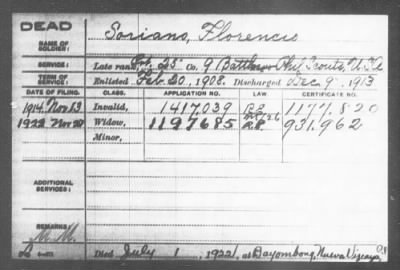 DEAD
NAME OF SOLDIER: Soriano, Florencio
SERVICE: Late rank Co. 9 Battln Phil Scouts, U.S.A.
TERM OF SERVICE: Enlisted Feb 20, 1908. Discharged Dec 9, 1913
DATE OF FILING. CLASS. APPLICATION NO. LAW. CERTIFICATE NO.
1914 Nov 13 Invalid, 1417,039 1177,820
1922 Nov Widow, 1197685 931,962
Minor,
ADDITIONAL SERVICES:
REMARKS:
Died July 1, 1922, at Bayombong, Nueva Vizcaya, P.I.